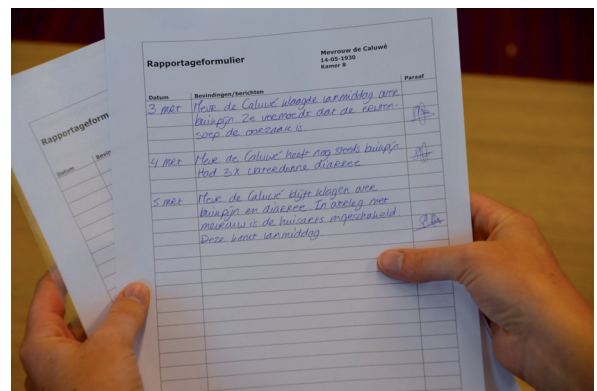 Rapportageformulier
Mevrouw de Caluwé
14-05-1930
Kamer 8
Datum Bevindingen/berichten Paraaf
3 mrt Mevr. de Caluwé klaagde vanmiddag over
buikpijn. Ze vermoedt dat de erwten-
soep de oorzaak is.
4 mrt Mevr. de Caluwé heeft nog steeds buikpijn
Had 3x waterdunne diarree
5 mrt Mevr. de Caluwé blijft klagen over
buikpijn en diarree. In overleg met
mevrouw is de huisarts ingeschakeld.
Deze komt vanmiddag
Rapportageform
Datum
Bevin